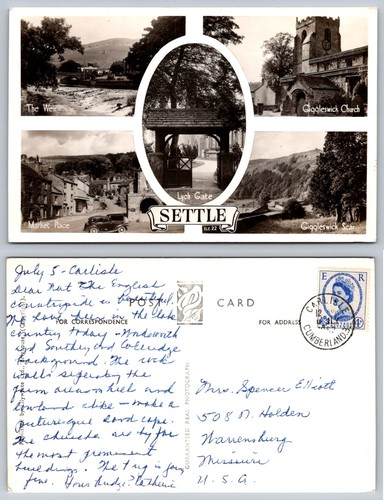 The Weir
Giggleswick Church
Lych Gate
Market Place
SETTLE
Giggleswick Scar
July 5 - Carlisle
Dear Nat The English
countryside is beautiful.
We have been in the lake
country today - Wordsworth
and Southey and Coleridge
background. The rock
walls separating the
farm areas - hill and
lowland alike - make a
picturesque land scape.
The churches are by far
the most prominent
buildings. The trip is going
fine.
POST CARD
FOR CORRESPONDENCE
FOR ADDRESS
GUARANTEED REAL PHOTOGRAPH
E R
CARLISLE
CUMBERLAND
Mrs. Spencer Elliott
508 N. Holden
Warrensburg
Missouri
U.S.A.